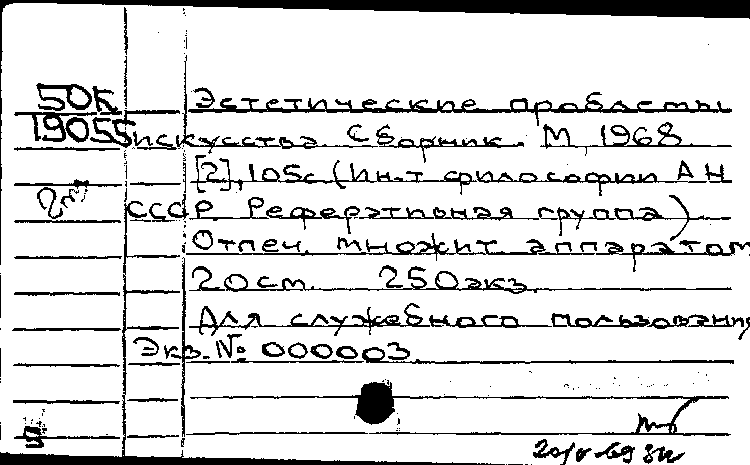 50К Эстетические проблемы
19055 искусства. Сборник. М, 1968.
[2], 105с. (Ин-т философии АН
СССР. Реферативная группа)
Отпеч. множит. аппаратом
20 см. 250 экз.
Для служебного пользования
Экз. № 000003.